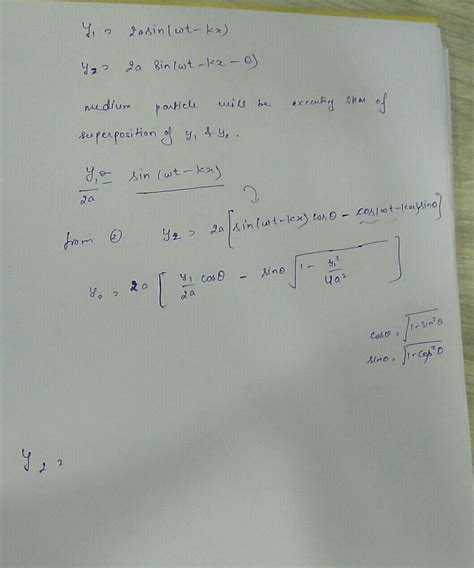 y₁ = 2a sin(ωt - kx)
y₂ = 2a sin(ωt - kx - θ)
medium particle will be executing SHM of
superposition of y₁ & y₂.
y₁/2a = sin(ωt - kx)
from ② y₂ = 2a[sin(ωt - kx) cosθ - cos(ωt - kx) sinθ]
y₂ = 2a [ y₁/2a cosθ - sinθ √(1 - y₁²/4a²) ]
cosθ = √(1 - sin²θ)
sinθ = √(1 - cos²θ)
y₂ =